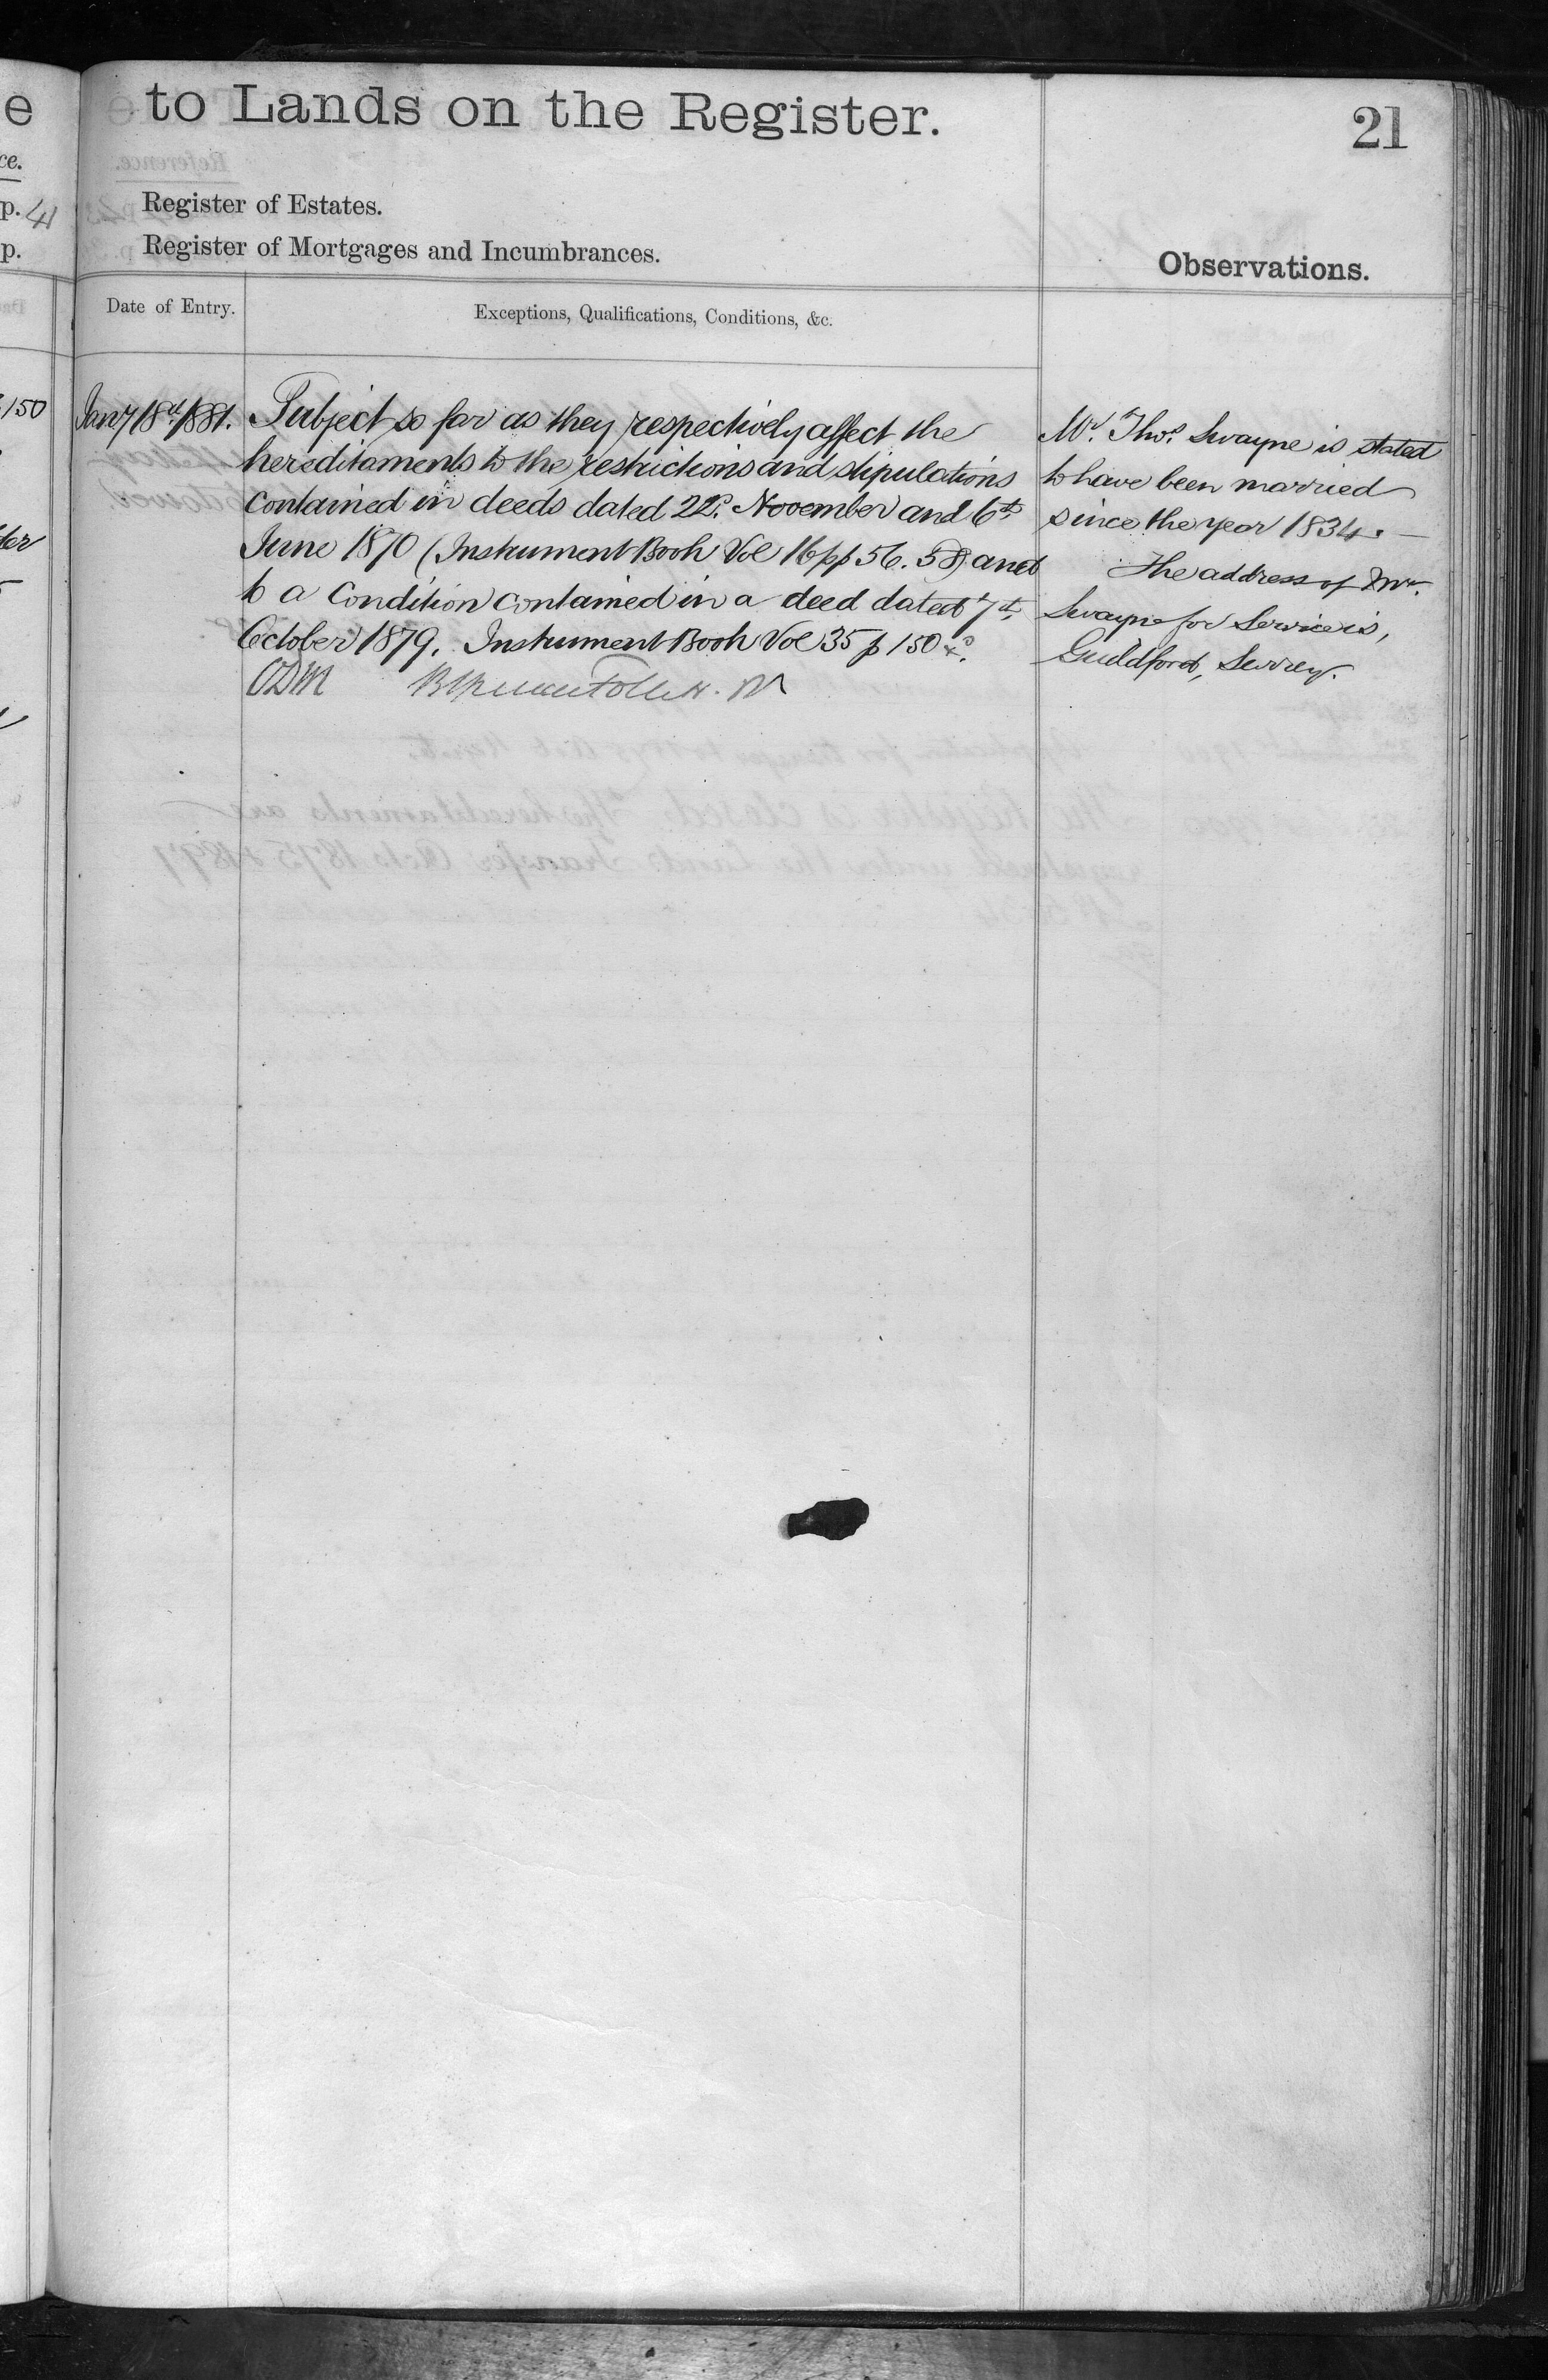 e to Lands on the Register.
21
ce.
p. 41 Register of Estates.
p. Register of Mortgages and Incumbrances.
Observations.
Date of Entry.
Exceptions, Qualifications, Conditions, &c.
150
Jany 18th 1881.
Subject so far as they respectively affect the
hereditaments to the restrictions and stipulations
contained in deeds dated 22nd November and 6th
June 1870 (Instrument Book Vol 16 pp 56. 58) and
to a Condition contained in a deed dated 7th
October 1879. Instrument Book Vol 35 p 150
ODM
Mr. Thos. Swayne is stated
to have been married
since the year 1834.
The address of Mr.
Swayne for Service is,
Guildford, Surrey.